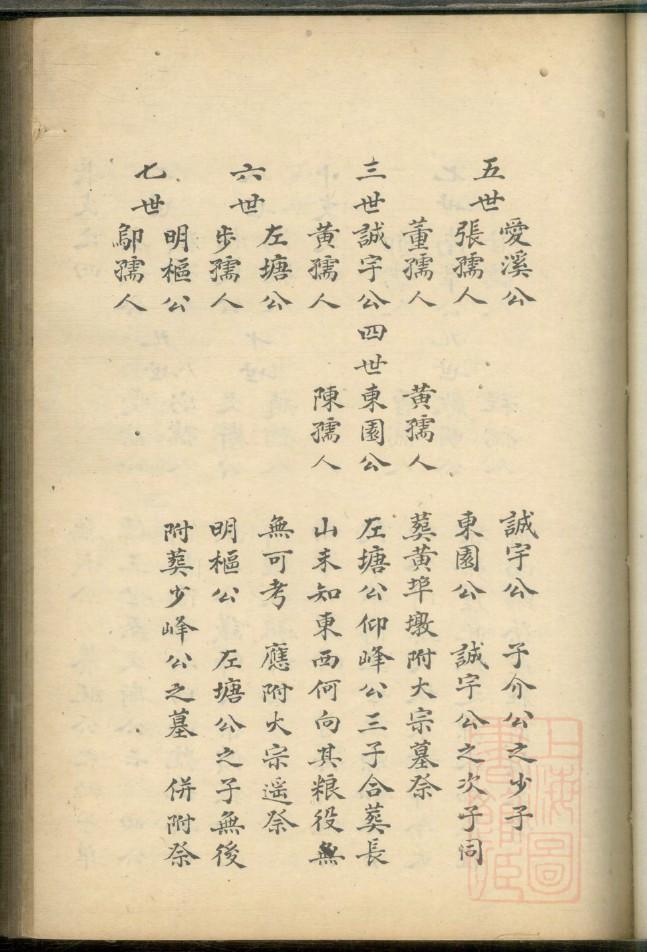 五世
愛溪公
張孺人
董孺人 黃孺人
三世誠宇公四世東園公
黃孺人 陳孺人
六世
左塘公
步孺人
七世
明樞公
鄔孺人
誠宇公 子介公之少子
東園公 誠宇公之次子同
葬黃埠墩附大宗墓祭
左塘公仰峰公三子合葬長
山未知東西何向其粮役無
無可考 應附大宗遥祭
明樞公 左塘公之子無後
附葬少峰公之墓 併附祭
上海圖
書館藏